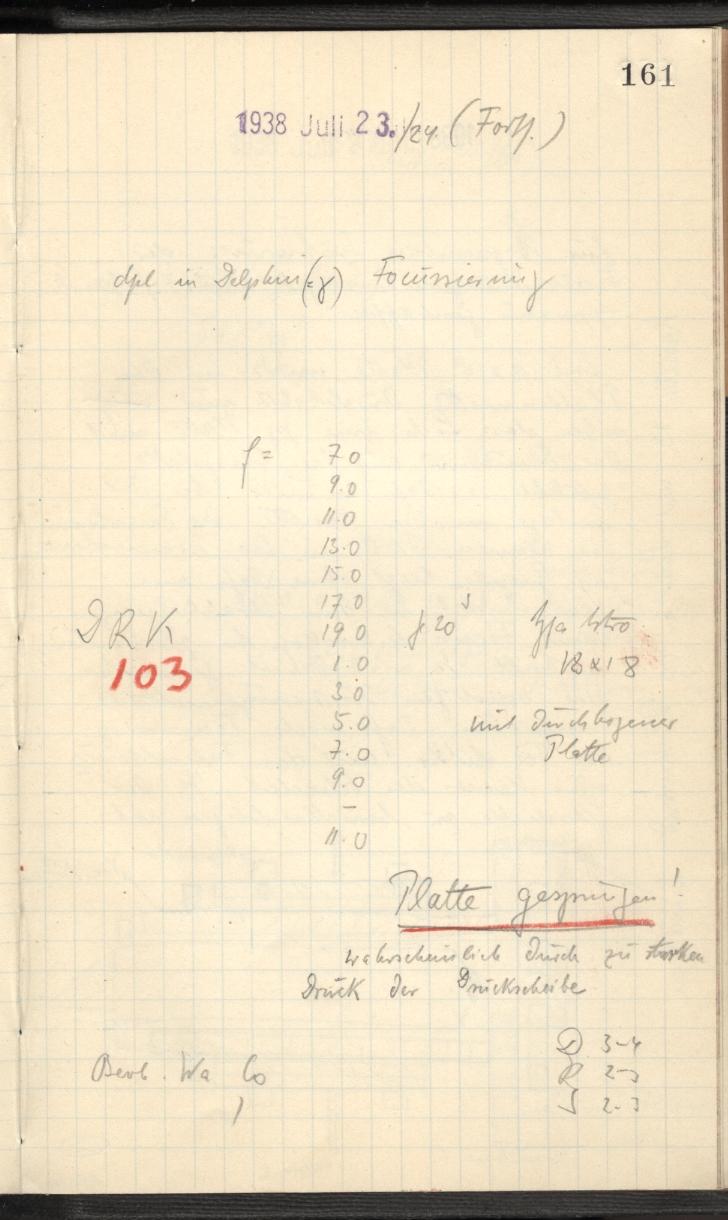 161
1938 Juli 23./24 (Forts.)
in Delphin (=γ) Focussierung
f = 7.0
9.0
11.0
13.0
15.0
17.0
DRK 19.0 20ˢ Astro
103 1.0 18x18
3.0
5.0 mit durchbogener
7.0 Platte
9.0
–
11.0
Platte gesprungen!
wahrscheinlich durch zu starken
Druck der Druckscheibe
D 3-4
Beob. Wa R 2-3
S 2-3